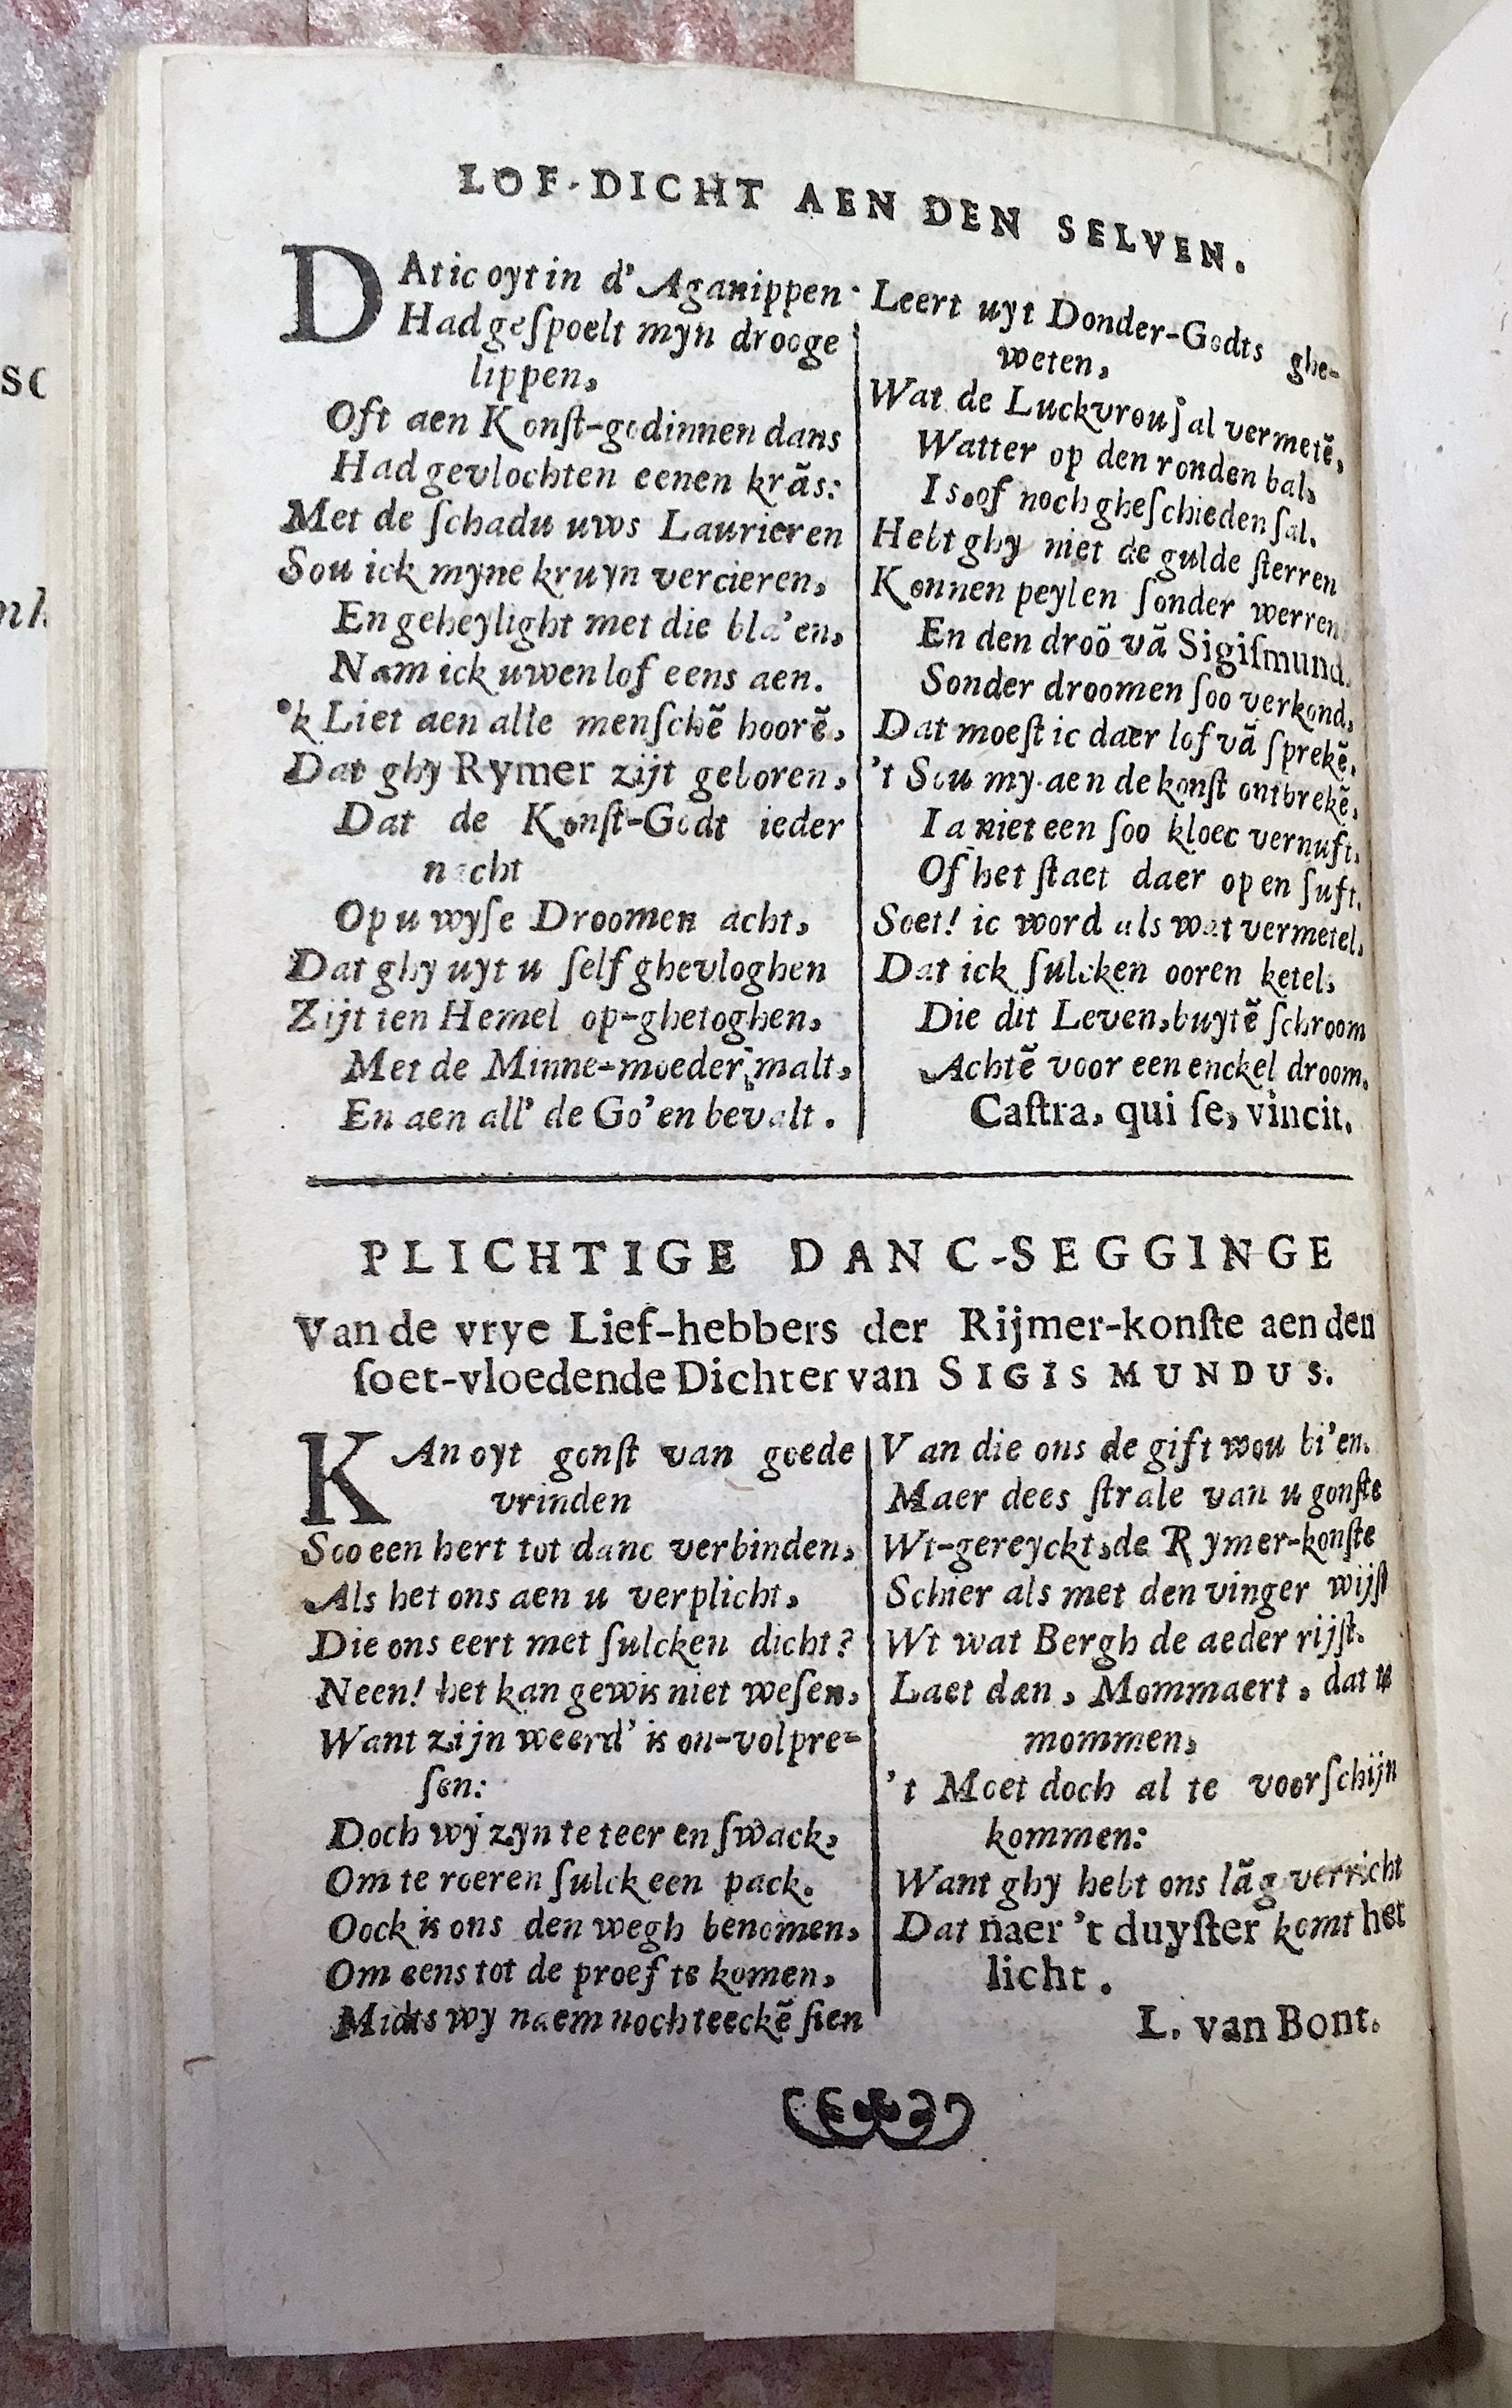 LOF-DICHT AEN DEN SELVEN.
DAt ic oyt in d' Aganippen
Had geſpoelt myn drooge
lippen,
Oft aen Konſt-godinnen dans
Had gevlochten eenen krãs:
Met de ſchadu uws Laurieren
Sou ick myne kruyn vercieren,
En geheylight met die bla'en,
Nam ick uwen lof eens aen.
'k Liet aen alle menſchẽ hoorẽ,
Dat ghy Rymer zijt geboren,
Dat de Konſt-Godt ieder
nacht
Op u wyſe Droomen acht,
Dat ghy uyt u ſelf ghevloghen
Zijt ten Hemel op-ghetoghen,
Met de Minne-moeder malt,
En aen all' de Go'en bevalt.
Leert uyt Donder-Godts ghe-
weten,
Wat de Luckvrou ſal vermetẽ,
Watter op den ronden bal,
Is, of noch gheſchieden ſal.
Hebt ghy niet de gulde ſterren
Konnen peylen ſonder werren
En den droõ vã Sigiſmund.
Sonder droomen ſoo verkond,
Dat moeſt ic daer lof vã ſprekẽ,
't Sou my aen de konſt ontbrekẽ,
Ia niet een ſoo kloec vernuft,
Of het ſtaet daer op en ſuft.
Soet! ic word als wat vermetel,
Dat ick ſulcken ooren ketel,
Die dit Leven, buytẽ ſchroom
Achtẽ voor een enckel droom.
Caſtra, qui ſe, vincit.
PLICHTIGE DANC-SEGGINGE
Van de vrye Lief-hebbers der Rijmer-konſte aen den
ſoet-vloedende Dichter van SIGISMUNDUS.
KAn oyt gonſt van goede
vrinden
Soo een hert tot danc verbinden,
Als het ons aen u verplicht,
Die ons eert met ſulcken dicht?
Neen! het kan gewis niet weſen,
Want zijn weerd' is on-volpre-
ſen:
Doch wy zyn te teer en ſwack,
Om te roeren ſulck een pack.
Oock is ons den wegh benomen,
Om eens tot de proef te komen,
Midts wy naem noch teeckẽ ſien
Van die ons de gift wou bi'en.
Maer dees ſtrale van u gonſte
Wt-gereyckt, de Rymer-konſte
Schier als met den vinger wijſt
Wt wat Bergh de aeder rijſt.
Laet dan, Mommaert, dat u
mommen,
't Moet doch al te voorſchijn
kommen:
Want ghy hebt ons lãg verricht
Dat naer 't duyſter komt het
licht.
L. van Bont.